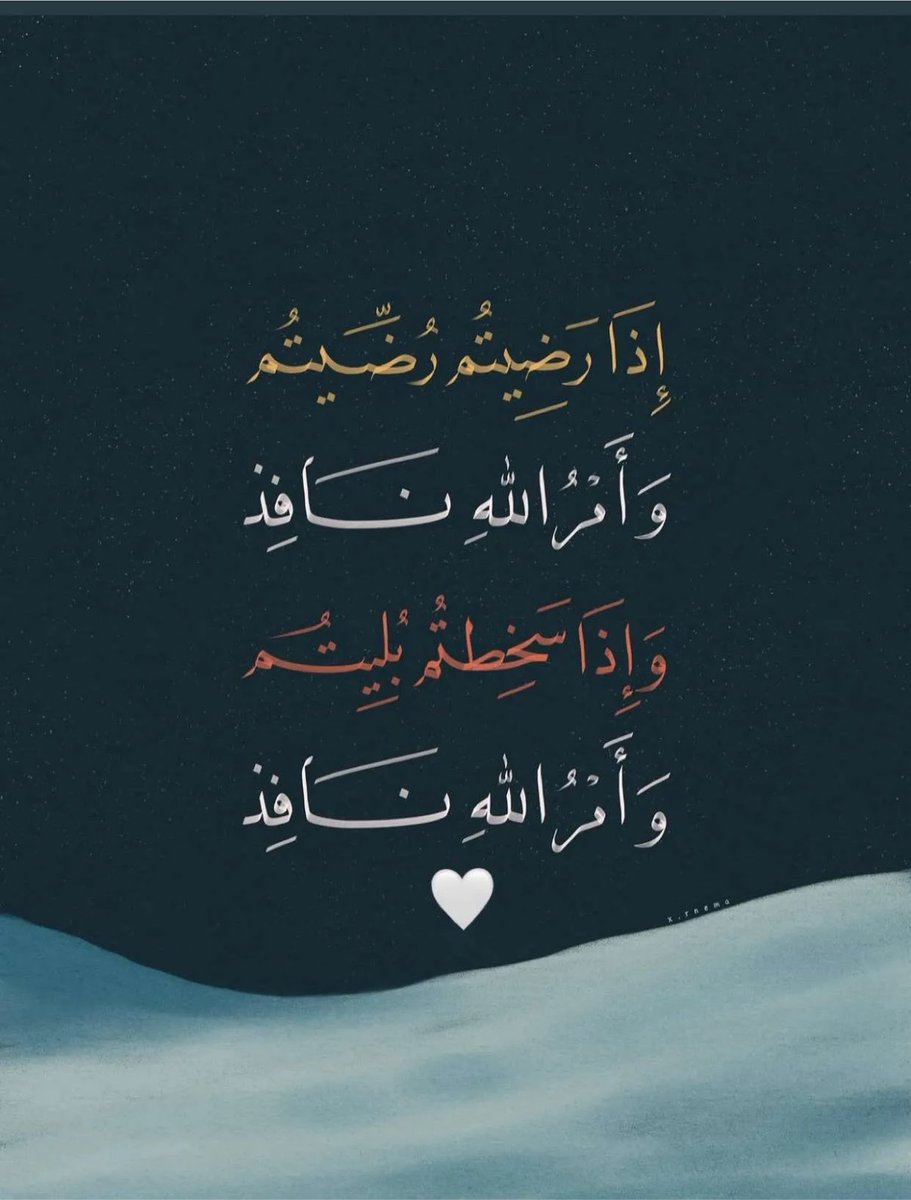 إِذَا رَضِيتُم رُضِّيَيتُم
وَأَمْرُ اللهِ نَافِذ
وَإِذَا سَخِطتُم بُلِيتُم
وَأَمْرُ اللهِ نَافِذ
🤍
x.rnema